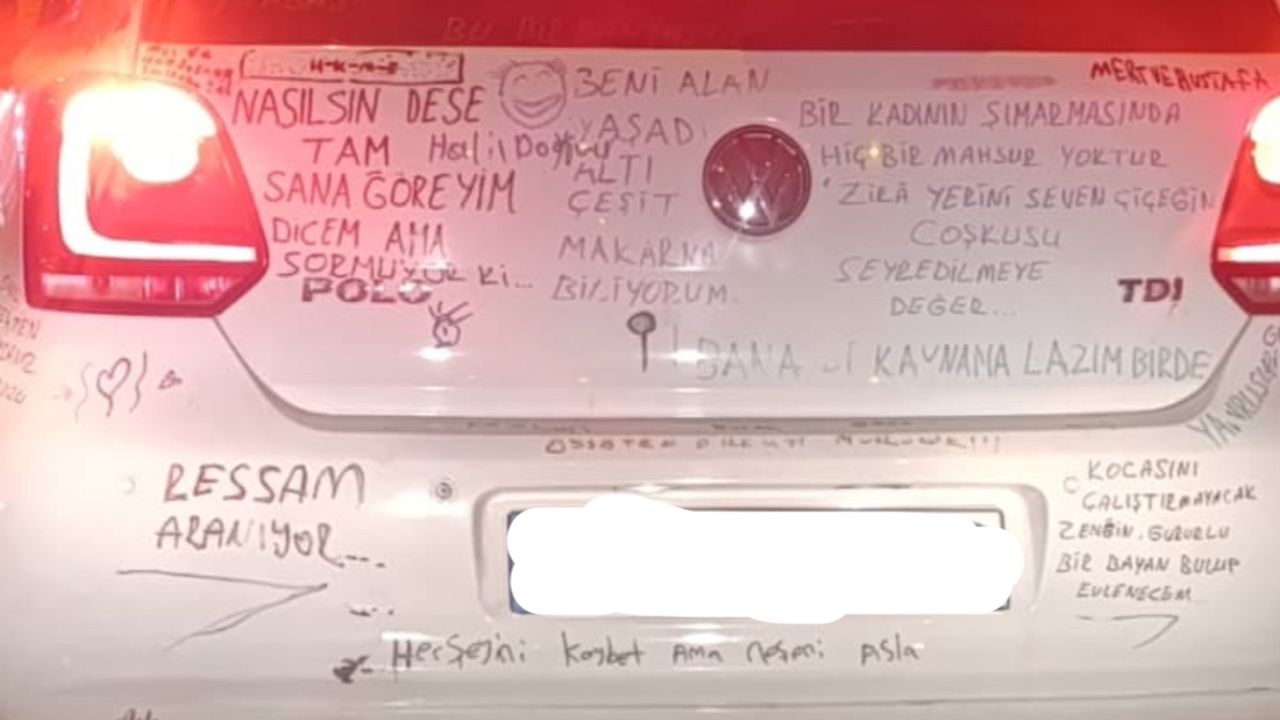 H-K-M-E
MERT VE MUSTAFA
NASILSIN DESE
TAM
SANA GÖREYİM
DİCEM AMA
SORMUYOR Kİ...
POLO
Halil Doğruy
BENİ ALAN
YAŞADI
ALTI
ÇEŞİT
MAKARNA
BİLİYORUM.
BİR KADININ ŞIMARMASINDA
HİÇ BİR MAHSUR YOKTUR
ZİRÂ YERİNİ SEVEN ÇİÇEĞİN
COŞKUSU
SEYREDİLMEYE
DEĞER...
TDI
BANA Jİ KAYNANA LAZIM BİRDE
RESSAM
ARANIYOR....
KOCASINI
ÇALIŞTIRMAYACAK
ZENGİN. GURURLU
BİR BAYAN BULUP
EVLENECEM
Herşejini kaybet Ama neşeni Asla